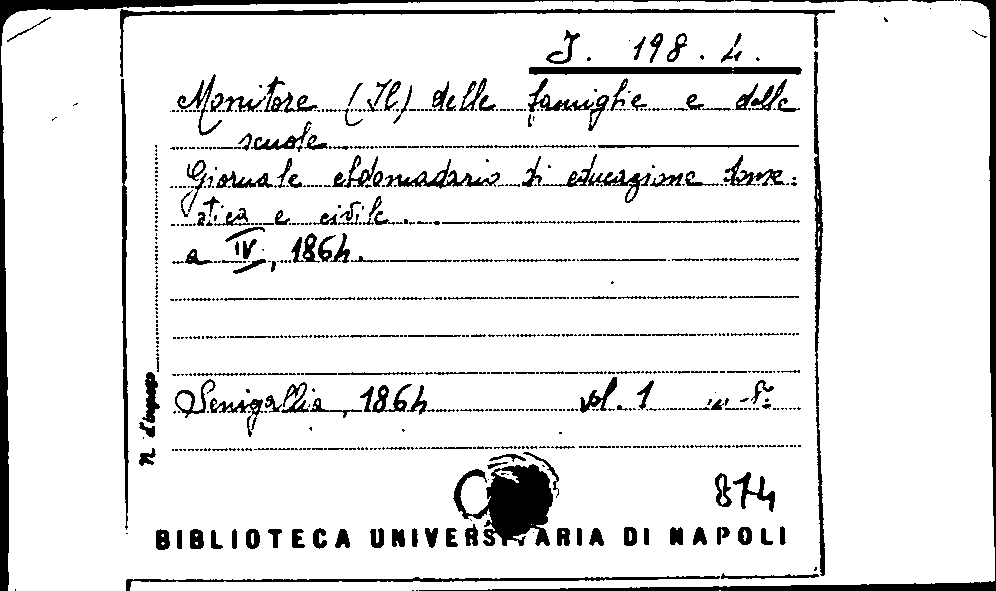 J. 198. 4.
Monitore (Il) delle famiglie e delle
scuole
Giornale ebdomadario di educazione dome:
stica e civile ...
a IV, 1864.
Senigallia, 1864 vol. 1 in-8º
N. d'ingresso
874
BIBLIOTECA UNIVERSITARIA DI NAPOLI